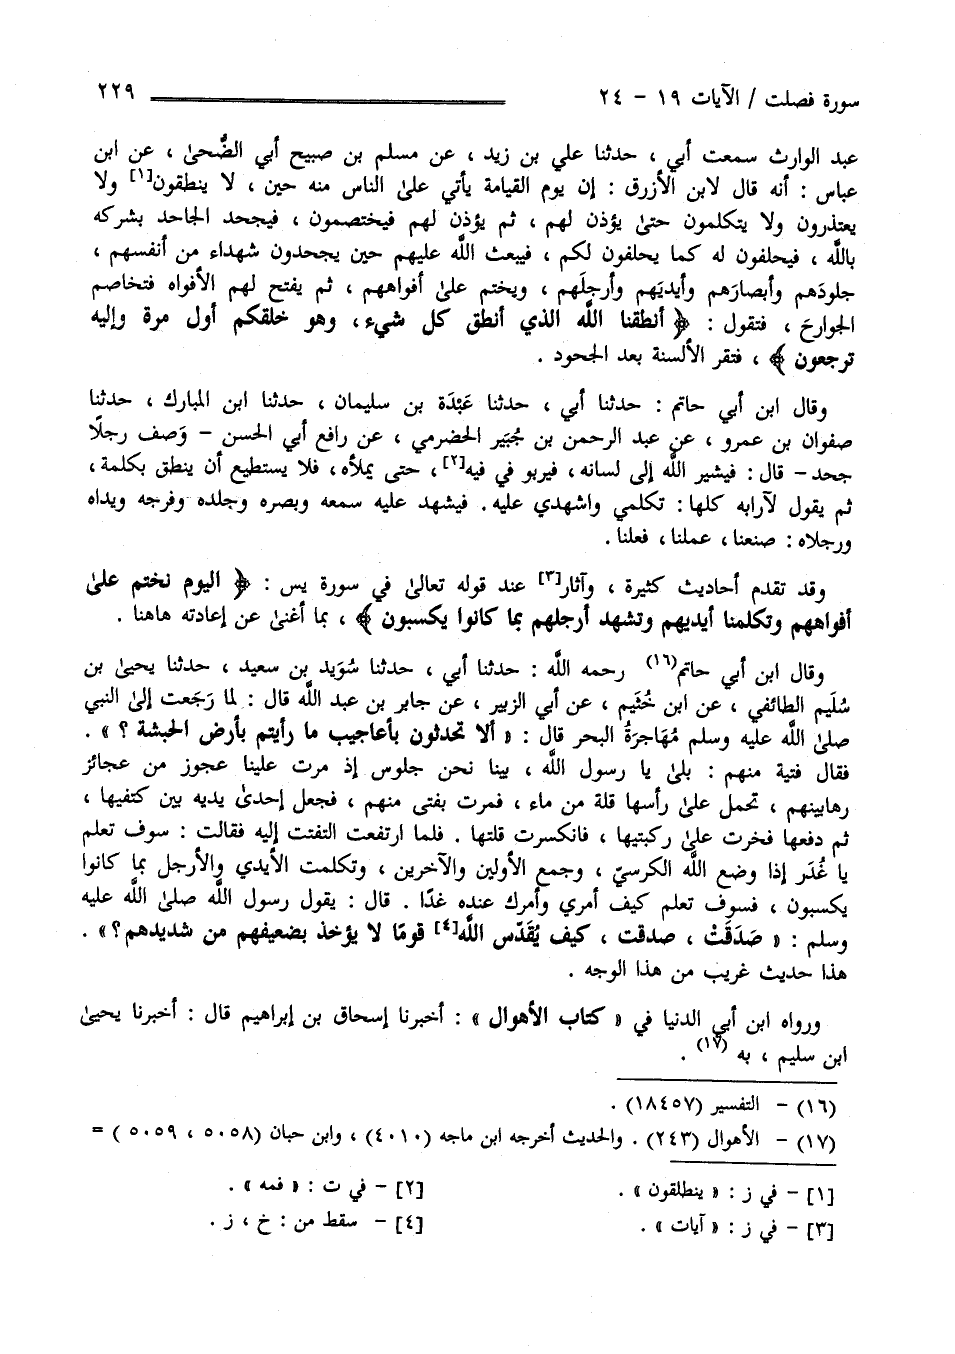 سورة فصلت / الآيات ١٩ - ٢٤ ٢٢٩
عبد الوارث سمعت أبي ، حدثنا علي بن زيد ، عن مسلم بن صبيح أبي الضُّحىٰ ، عن ابن
عباس : أنه قال لابن الأزرق : إن يوم القيامة يأتي علىٰ الناس منه حين ، لا ينطقون[١] ولا
يعتذرون ولا يتكلمون حتىٰ يؤذن لهم ، ثم يؤذن لهم فيختصمون ، فيجحد الجاحد بشركه
باللَّه ، فيحلفون له كما يحلفون لكم ، فيبعث اللَّه عليهم حين يجحدون شهداء من أنفسهم ،
جلودَهم وأبصارَهم وأيديَهم وأرجلَهم ، ويختم علىٰ أفواههم ، ثم يفتح لهم الأفواه فتخاصم
الجوارحَ ، فتقول : ﴿ أنطقنا اللَّه الذي أنطق كل شيء ، وهو خلقكم أول مرة وإليه
ترجعون ﴾ ، فتقر الألسنة بعد الجحود .
وقال ابن أبي حاتم : حدثنا أبي ، حدثنا عَبْدَة بن سليمان ، حدثنا ابن المبارك ، حدثنا
صفوان بن عمرو ، عن عبد الرحمن بن جُبَير الحضرمي ، عن رافع أبي الحسن - وَصف رجلًا
جحد - قال : فيشير اللَّه إلى لسانه ، فيربو في فيه[٢] ، حتى يملأه ، فلا يستطيع أن ينطق بكلمة ،
ثم يقول لآرابه كلها : تكلمي واشهدي عليه . فيشهد عليه سمعه وبصره وجلده وفرجه ويداه
ورجلاه : صنعنا ، عملنا ، فعلنا .
وقد تقدم أحاديث كثيرة ، وآثار[٣] عند قوله تعالىٰ في سورة يس : ﴿ اليوم نختم علىٰ
أفواههم وتكلمنا أيديهم وتشهد أرجلهم بما كانوا يكسبون ﴾ ، بما أغنىٰ عن إعادته هاهنا .
وقال ابن أبي حاتم(١٦) رحمه اللَّه : حدثنا أبي ، حدثنا سُوَيد بن سعيد ، حدثنا يحيىٰ بن
سُلَيم الطائفي ، عن ابن خُثَيم ، عن أبي الزبير ، عن جابر بن عبد اللَّه قال : لما رَجَعت إلىٰ النبي
صلىٰ اللَّه عليه وسلم مُهَاجرَةُ البحر قال : « ألا تحدثون بأعاجيب ما رأيتم بأرض الحبشة ؟ » .
فقال فتية منهم : بلىٰ يا رسول اللَّه ، بينا نحن جلوس إذ مرت علينا عجوز من عجائز
رهابينهم ، تحمل علىٰ رأسها قلة من ماء ، فمرت بفتى منهم ، فجعل إحدىٰ يديه بين كتفيها ،
ثم دفعها فخرت علىٰ ركبتيها ، فانكسرت قلتها . فلما ارتفعت التفتت إليه فقالت : سوف تعلم
يا غُدَر إذا وضع اللَّه الكرسيّ ، وجمع الأولين والآخرين ، وتكلمت الأيدي والأرجل بما كانوا
يكسبون ، فسوف تعلم كيف أمري وأمرك عنده غدًا . قال : يقول رسول اللَّه صلىٰ اللَّه عليه
وسلم : « صَدَقَتْ ، صدقت ، كيف يُقَدّس اللَّه[٤] قومًا لا يؤخذ بضعيفهم من شديدهم ؟ » .
هذا حديث غريب من هذا الوجه .
ورواه ابن أبي الدنيا في « كتاب الأهوال » : أخبرنا إسحاق بن إبراهيم قال : أخبرنا يحيىٰ
ابن سليم ، به (١٧) .
(١٦) - التفسير (١٨٤٥٧) .
(١٧) - الأهوال (٢٤٣) . والحديث أخرجه ابن ماجه (٤٠١٠) ، وابن حبان (٥٠٥٨ ، ٥٠٥٩ ) =
[١] - في ز : « ينطلقون » . [٢] - في ت : « فمه » .
[٣] - في ز : « آيات » . [٤] - سقط من : خ ، ز .